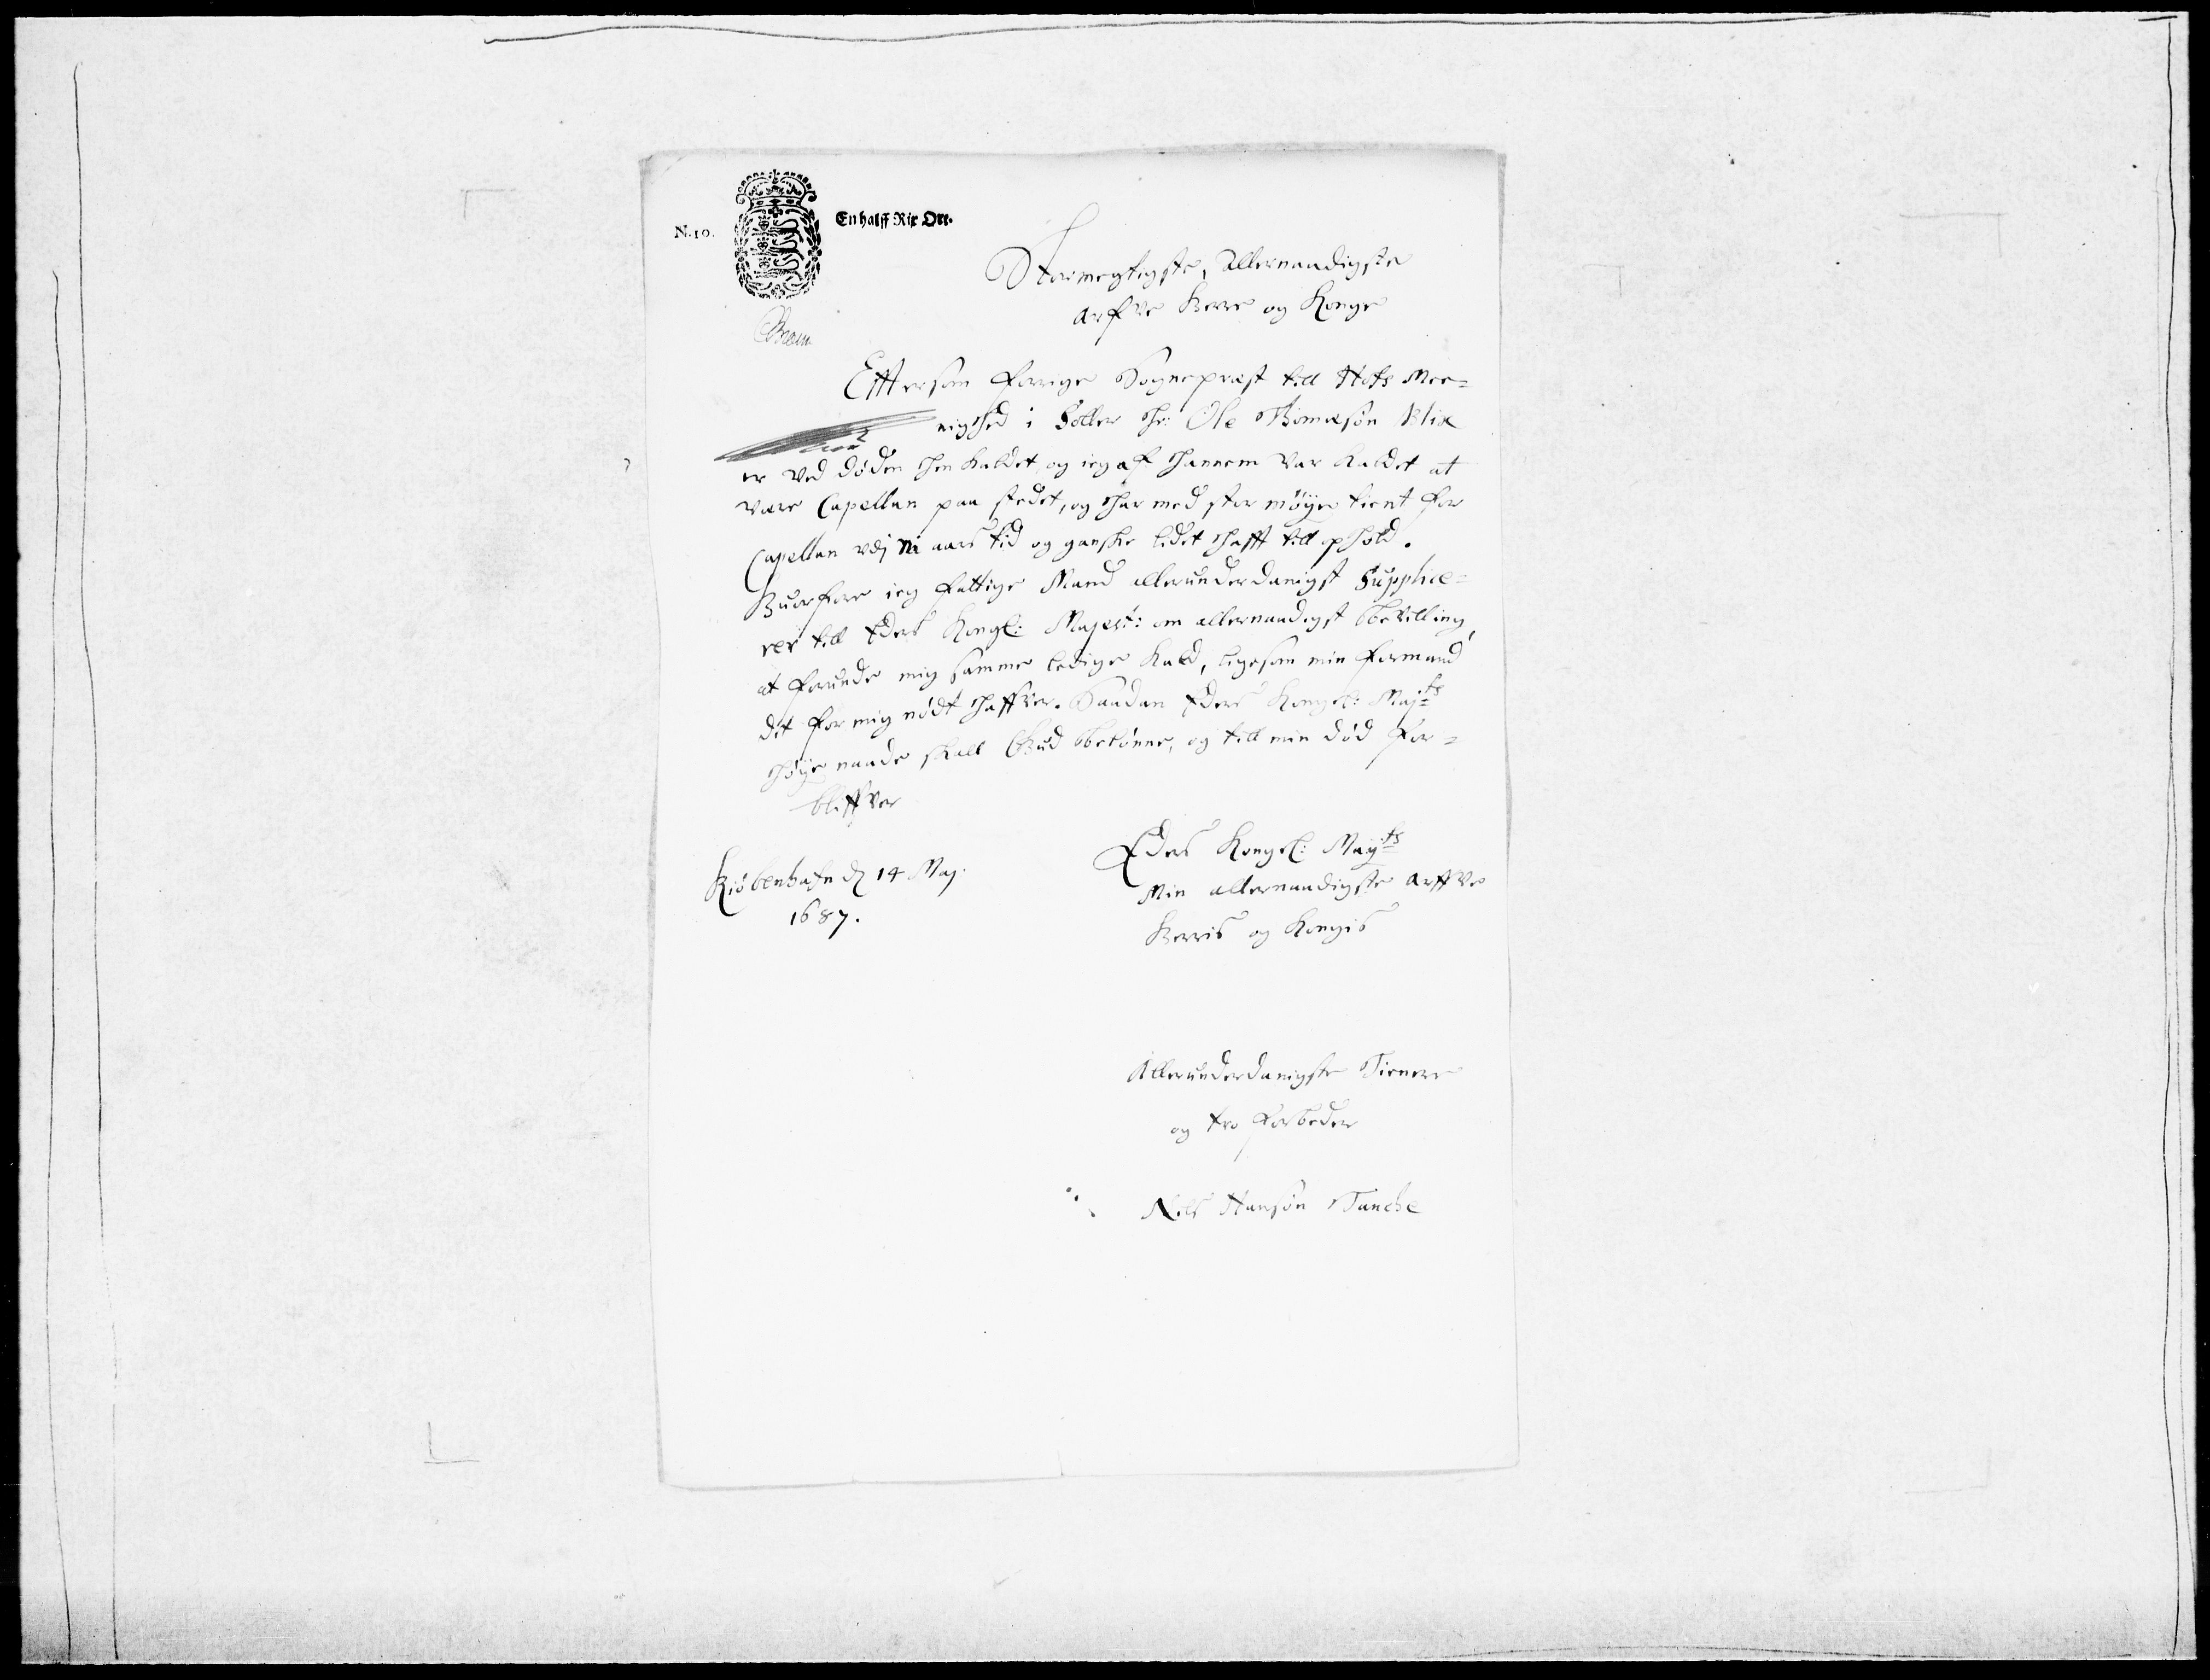 N. 10.
En halff Rix Ort.
Stormegtigste, Allernaadigste
Arfve Herre og Konge
Efftersom forrige Sogneprest till Hofs Mee-
nighed i Soller Hr: Ole Thomæsøn Blix
er ved døden hen kaldet, og ieg af hannem var kaldet at
være Capellan paa stedet, og har med stor møye tient for
Capellan udj Ni aars tid og ganske lidet hafft till ophold.
Huorfore ieg fattige Mand allerunderdanigst Supplice-
rer till Eders Kongl: Mayest: om allernaadigst bevilling,
at forunde mig samme ledige Kald, ligesom min formand
det for mig nødt haffver. Saadan Eders Kongel: Maj:ts
høye naade skall Gud belønne, og till min død for-
bliffver
Kiøbenhafn dȝ 14 Maj.
1687.
Eders Kongel: May:ts
Min allernaadigste Arffve
Herris og Kongis
Allerunderdanigste Tienere
og tro forbeder
Niels Hansøn Tanche